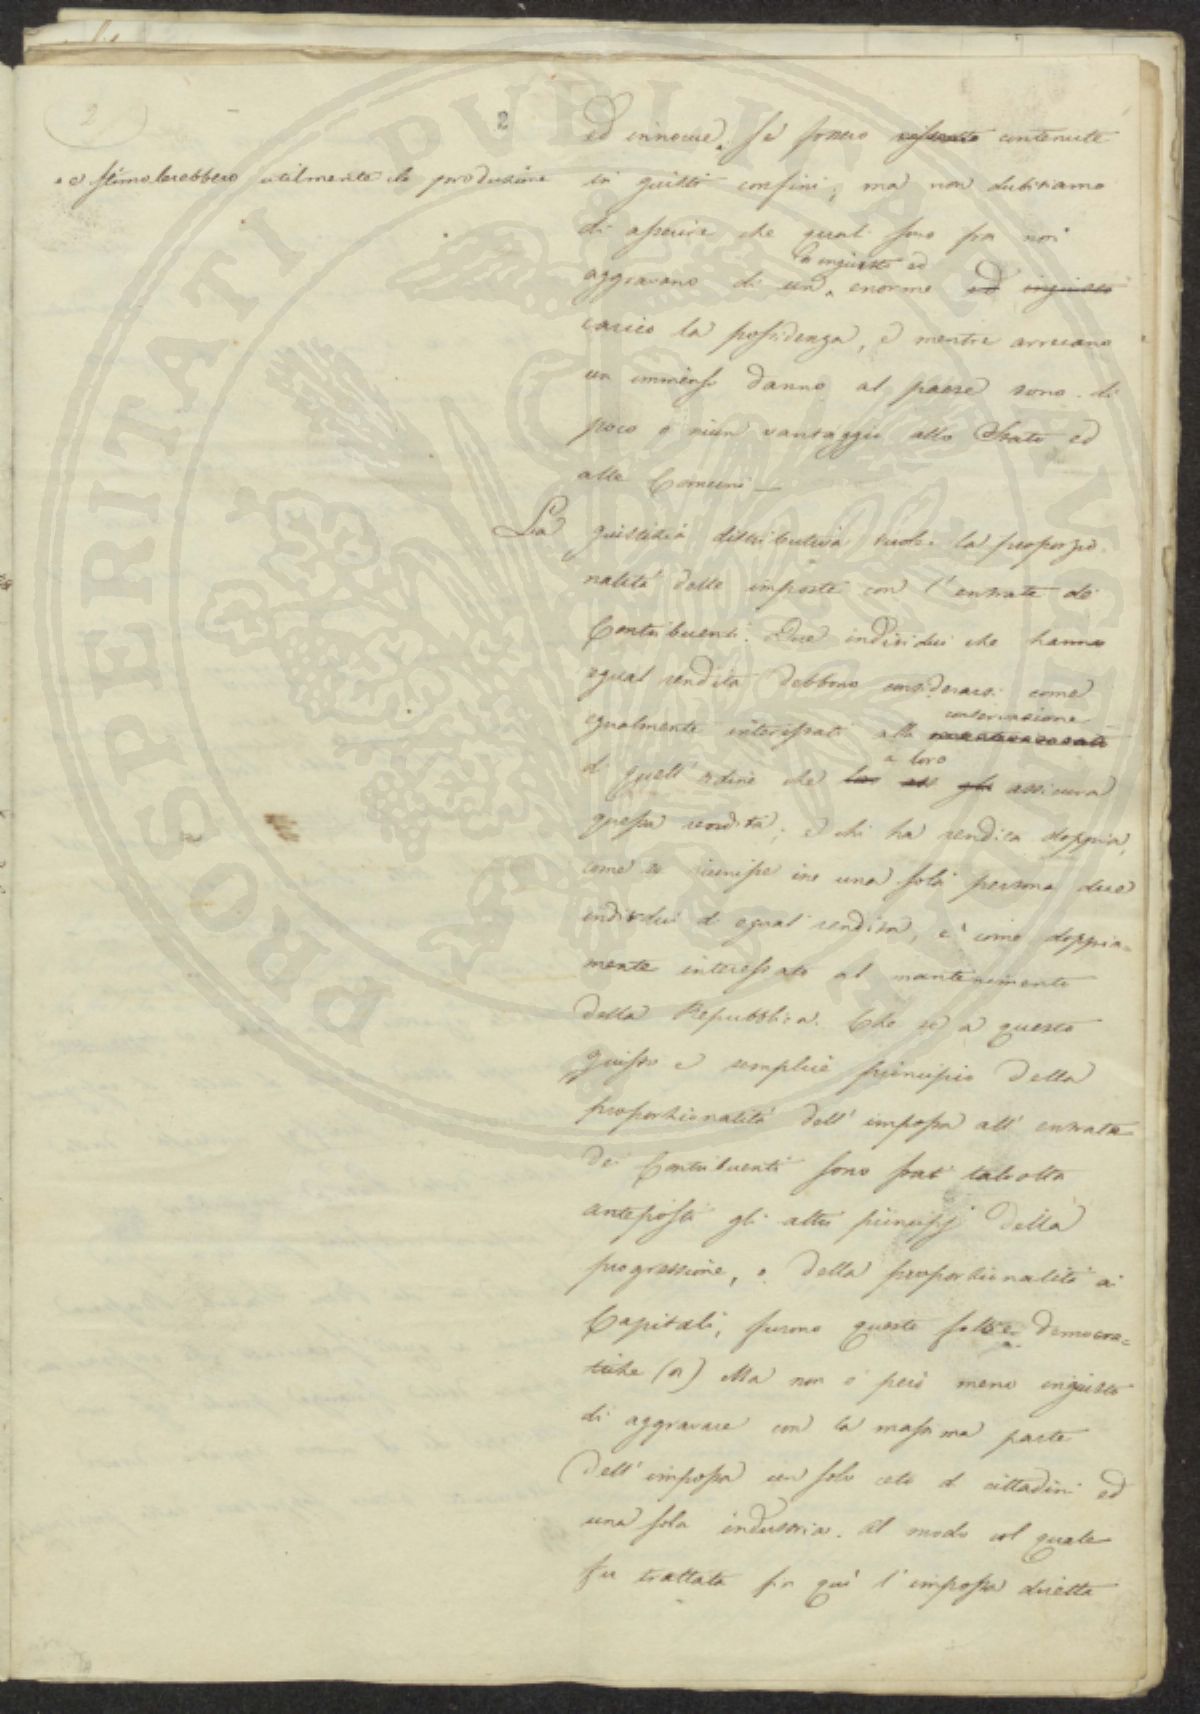 2
2
ed innocue. Se fossero ristrette contenute
e stimolerebbero utilmente la produzione
in giusti confini; ma non dubitiamo
di asserire che quali sono fra noi
ingiusto ed
aggravano di un enorme ed ingiusto
carico la possidenza, e mentre arrecano
un immenso danno al paese sono di
poco o niun vantaggio allo Stato ed
alle Comuni —
La giustizia distributiva vuole la proporzio-
nalità delle imposte con l'entrate de'
Contribuenti. Due individui che hanno
egual rendita debbono considerarsi come
conservazione
egualmente interessati alla
a loro
di quell'ordine che gli assicura
questa rendita; e chi ha rendita doppia,
come se riunisse in una sola persona due
individui di egual rendita, è come doppia=
mente interessato al mantenimento
della Repubblica. Che se a questo
giusto e semplice principio della
proporzionalità dell'imposta all'entrata
dei Contribuenti sono stati talvolta
anteposti gli altri principj della
progressione, o della proporzionalità ai
Capitali, furono queste false democra=
tiche (a) Ma non è però meno ingiusto
di aggravare con la massima parte
dell'imposta un solo ceto di cittadini ed
una sola industria. Al modo col quale
fu trattata fin quì l'imposta diretta
PROSPERITATI PVBLICAE